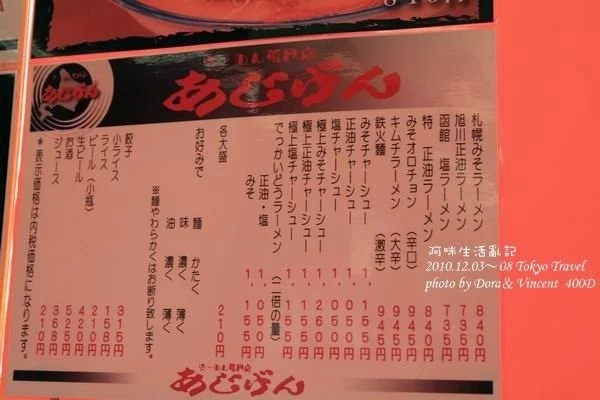 らーめん専門店
あじげん
札幌みそラーメン 840円
旭川正油ラーメン 735円
函館 塩ラーメン 735円
特 正油ラーメン 840円
みそオロチョン（辛口） 945円
キムチラーメン（大辛） 945円
鉄火麺（激辛） 945円
みそチャーシュー 1,155円
正油チャーシュー 1,050円
塩チャーシュー 1,050円
極上みそチャーシュー 1,260円
極上正油チャーシュー 1,155円
極上塩チャーシュー 1,155円
でっかいどうラーメン（二倍の量）
正油・塩 1,050円
みそ 1,155円
各大盛 210円
お好みで
麺 かたく
味 濃く 薄く
油 濃く 薄く
※麺やわらかくはお断り致します。
餃子 315円
小ライス 158円
ライス 210円
ビール（小瓶） 420円
生ビール 525円
お酒 368円
ジュース 210円
＊表示価格は内税価格になります。
らーめん専門店
あじげん
阿咪生活亂記
2010.12.03～08 Tokyo Travel
photo by Dora & Vincent 400D